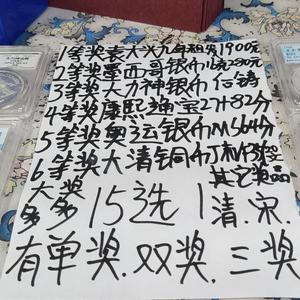 1等奖袁大头九年和为1900元
2等奖墨西哥银币1克230元
3等奖大力神银币后铸
4等奖康熙通宝27+82分
5等奖奥运银币MS64分
6等奖大清铜币
其它奖
大奖
多多15选1清.宋.
有单奖.双奖.三奖